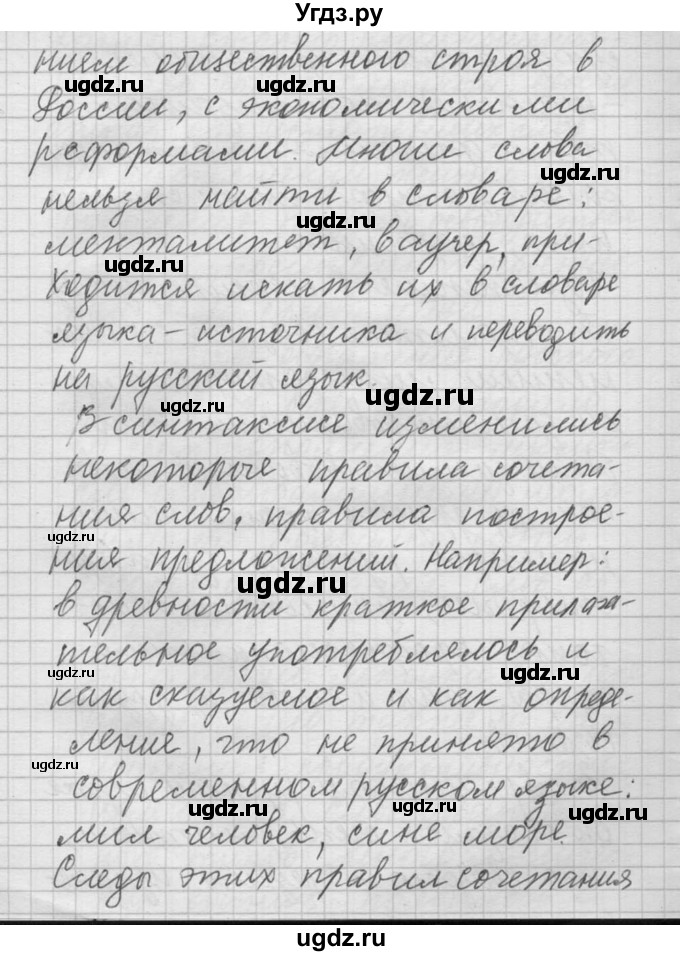 Угдз.ру
нием общественного строя в
ugdz.ru ugdz.ru
России, с экономическими
реформами. Многие слова
ugdz.ru
нельзя найти в словаре:
ugdz.ru
менталитет, ваучер, при-
ugdz.ru
ходится искать их в словаре
языка-источника и переводить
на русский язык.
ugdz.ru ugdz.ru
В синтаксисе изменились
некоторые правила сочета-
ния слов, правила построе-
ugdz.ru
ния предложений. Например:
ugdz.ru
в древности краткое прилага-
тельное употреблялось и
ugdz.ru ugdz.ru
как сказуемое и как опреде-
ление, что не принято в
ugdz.ru
современном русском языке:
ugdz.ru ugdz.ru ugdz.ru
мил человек, сине море.
Следы этих правил сочетания
ugdz.ru